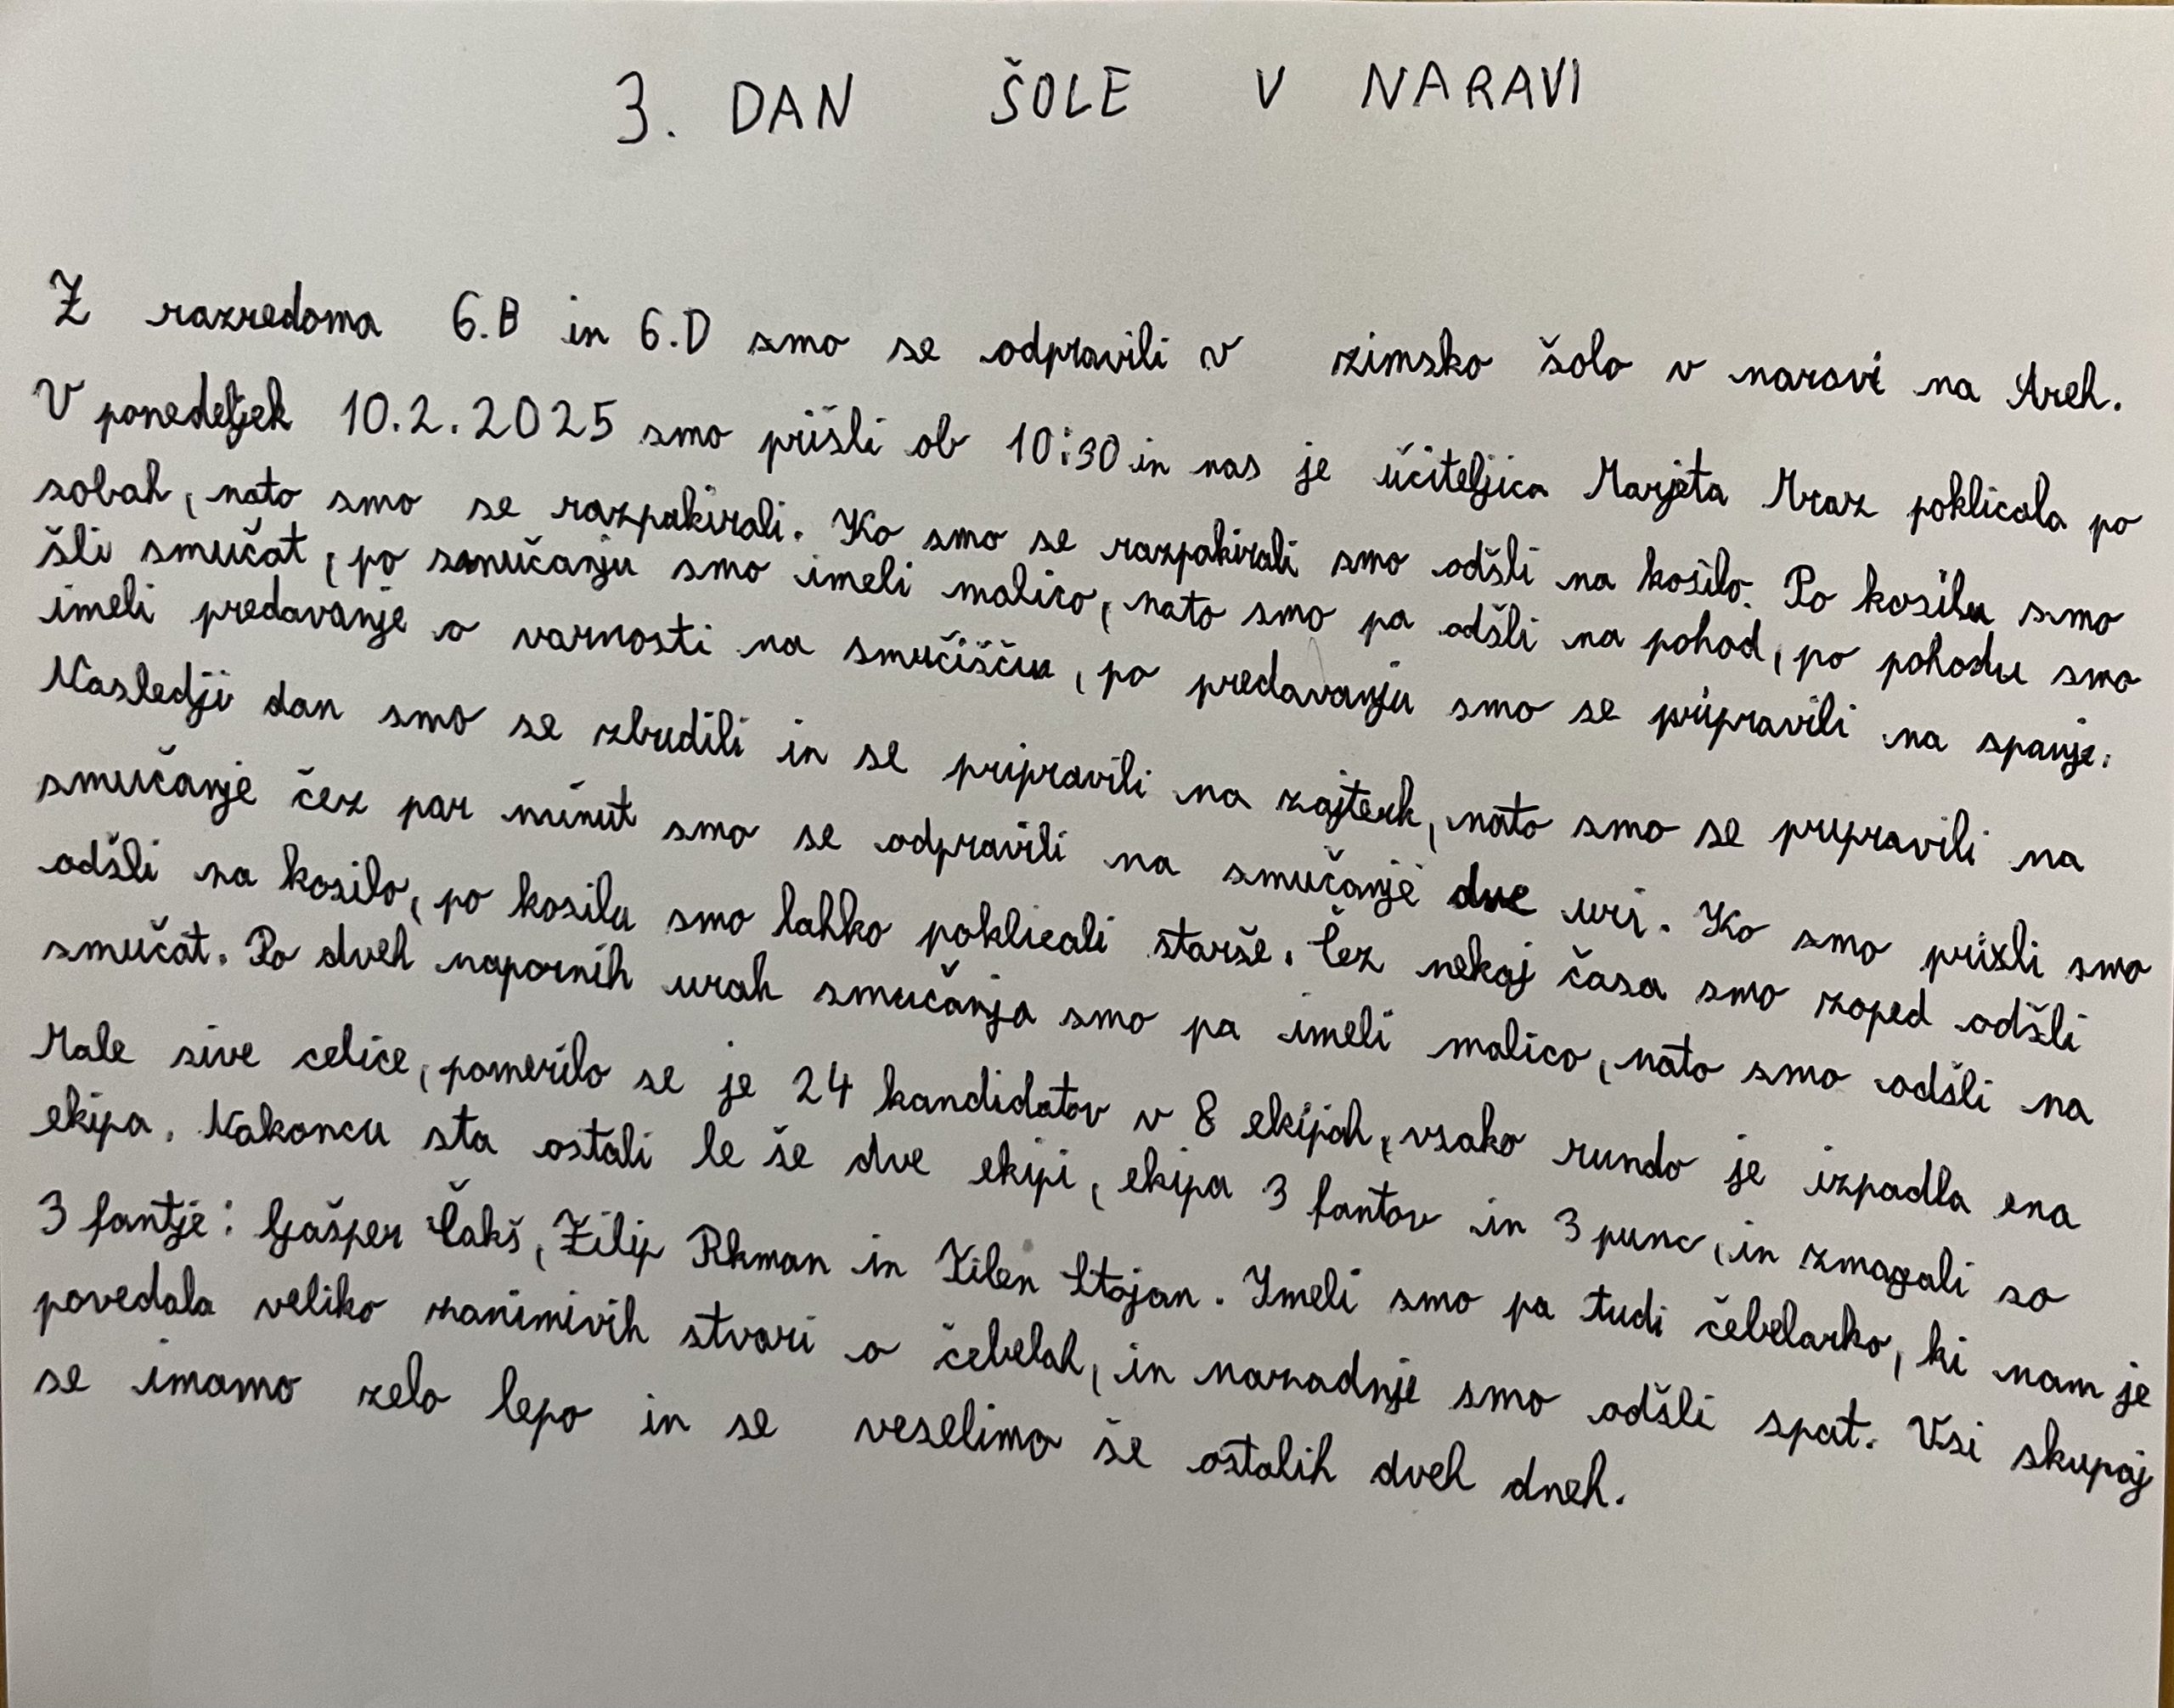 3. DAN ŠOLE V NARAVI
Z razredoma 6.B in 6.D smo se odpravili v zimsko šolo v naravi na Areh.
V ponedeljek 10.2.2025 smo prišli ob 10:30 in nas je učiteljica Marjeta Mraz poklicala po
sobah, nato smo se razpakirali. Ko smo se razpakirali smo odšli na kosilo. Po kosilu smo
šli smučat, po smučanju smo imeli malico, nato smo pa odšli na pohod, po pohodu smo
imeli predavanje o varnosti na smučišču, po predavanju smo se pripravili na spanje.
Nasledji dan smo se zbudili in se pripravili na zajterk, nato smo se pripravili na
smučanje čez par minut smo se odpravili na smučanje dve uri. Ko smo prišli smo
odšli na kosilo, po kosilu smo lahko poklicali starše. Čez nekaj časa smo zoped odšli
smučat. Po dveh napornih urah smučanja smo pa imeli malico, nato smo odšli na
Male sive celice, pomerilo se je 24 kandidatov v 8 ekipah, vsako rundo je izpadla ena
ekipa. Nakoncu sta ostali le še dve ekipi, ekipa 3 fantov in 3 punc, in zmagali so
3 fantje: Gašper Čakš, Filip Rkman in Filen Stojan. Imeli smo pa tudi čebelarko, ki nam je
povedala veliko zanimivih stvari o čebelah, in naradnje smo odšli spat. Vsi skupaj
se imamo zelo lepo in se veselimo še ostalih dveh dneh.